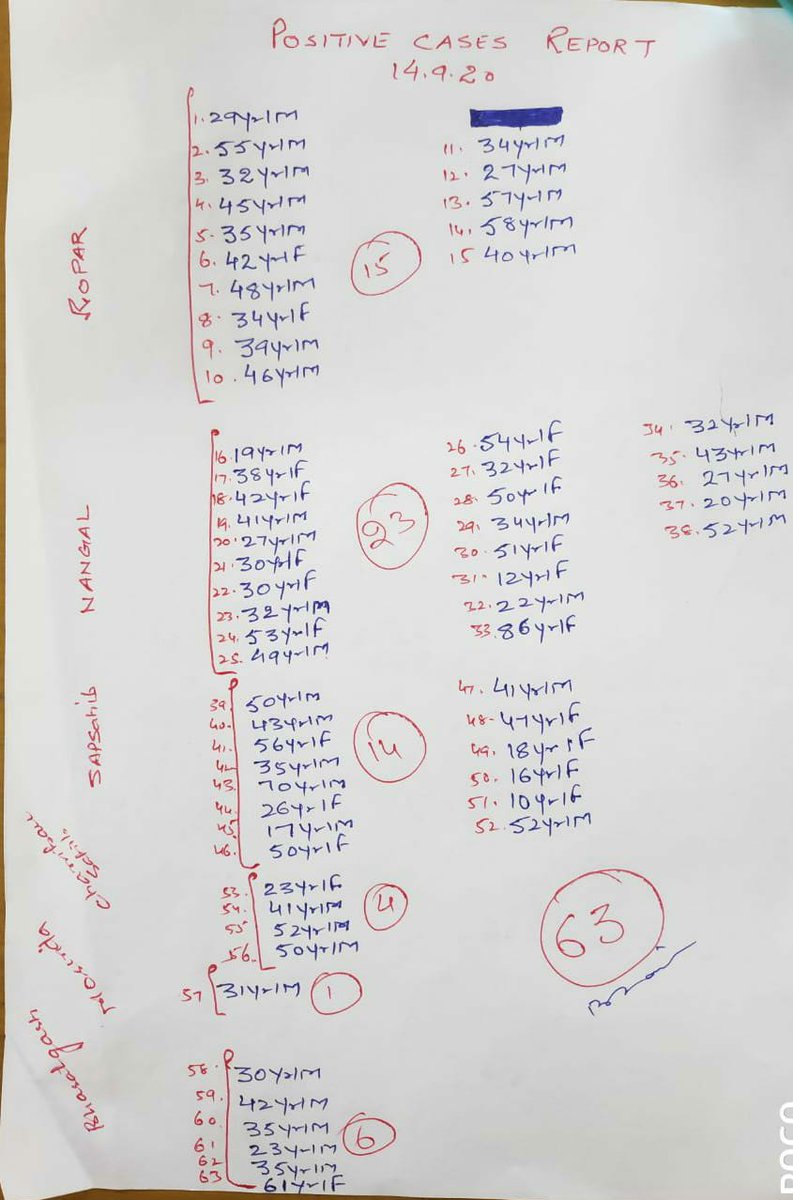 POSITIVE CASES REPORT
14.9.20
ROPAR
1. 29yr/M
2. 55yr/M
3. 32yr/M
4. 45yr/M
5. 35yr/M
6. 42yr/F
7. 48yr/M
8. 34yr/F
9. 39yr/M
10. 46yr/M
15
11. 34yr/M
12. 27yr/M
13. 57yr/M
14. 58yr/M
15 40yr/M
NANGAL
16. 19yr/M
17. 38yr/F
18. 42yr/F
19. 41yr/M
20. 27yr/M
21. 30yr/F
22. 30yr/F
23. 32yr/M
24. 53yr/F
25. 49yr/M
23
26. 54yr/F
27. 32yr/F
28. 50yr/F
29. 34yr/M
30. 51yr/F
31. 12yr/F
32. 22yr/M
33. 86yr/F
34. 32yr/M
35. 43yr/M
36. 27yr/M
37. 20yr/M
38. 52yr/M
SAPSahib
39. 50yr/M
40. 43yr/M
41. 56yr/F
42. 35yr/M
43. 70yr/M
44. 26yr/F
45. 17yr/M
46. 50yr/F
14
47. 41yr/M
48. 47yr/F
49. 18yr/F
50. 16yr/F
51. 10yr/F
52. 52yr/M
Chamkaur Sahib
53. 23yr/F
54. 41yr/M
55. 52yr/M
56. 50yr/M
4
Morinda
57 31yr/M
1
Bharatgarh
58. 30yr/M
59. 42yr/M
60. 35yr/M
61 23yr/M
62 35yr/M
63 61yr/F
6
63
POCO